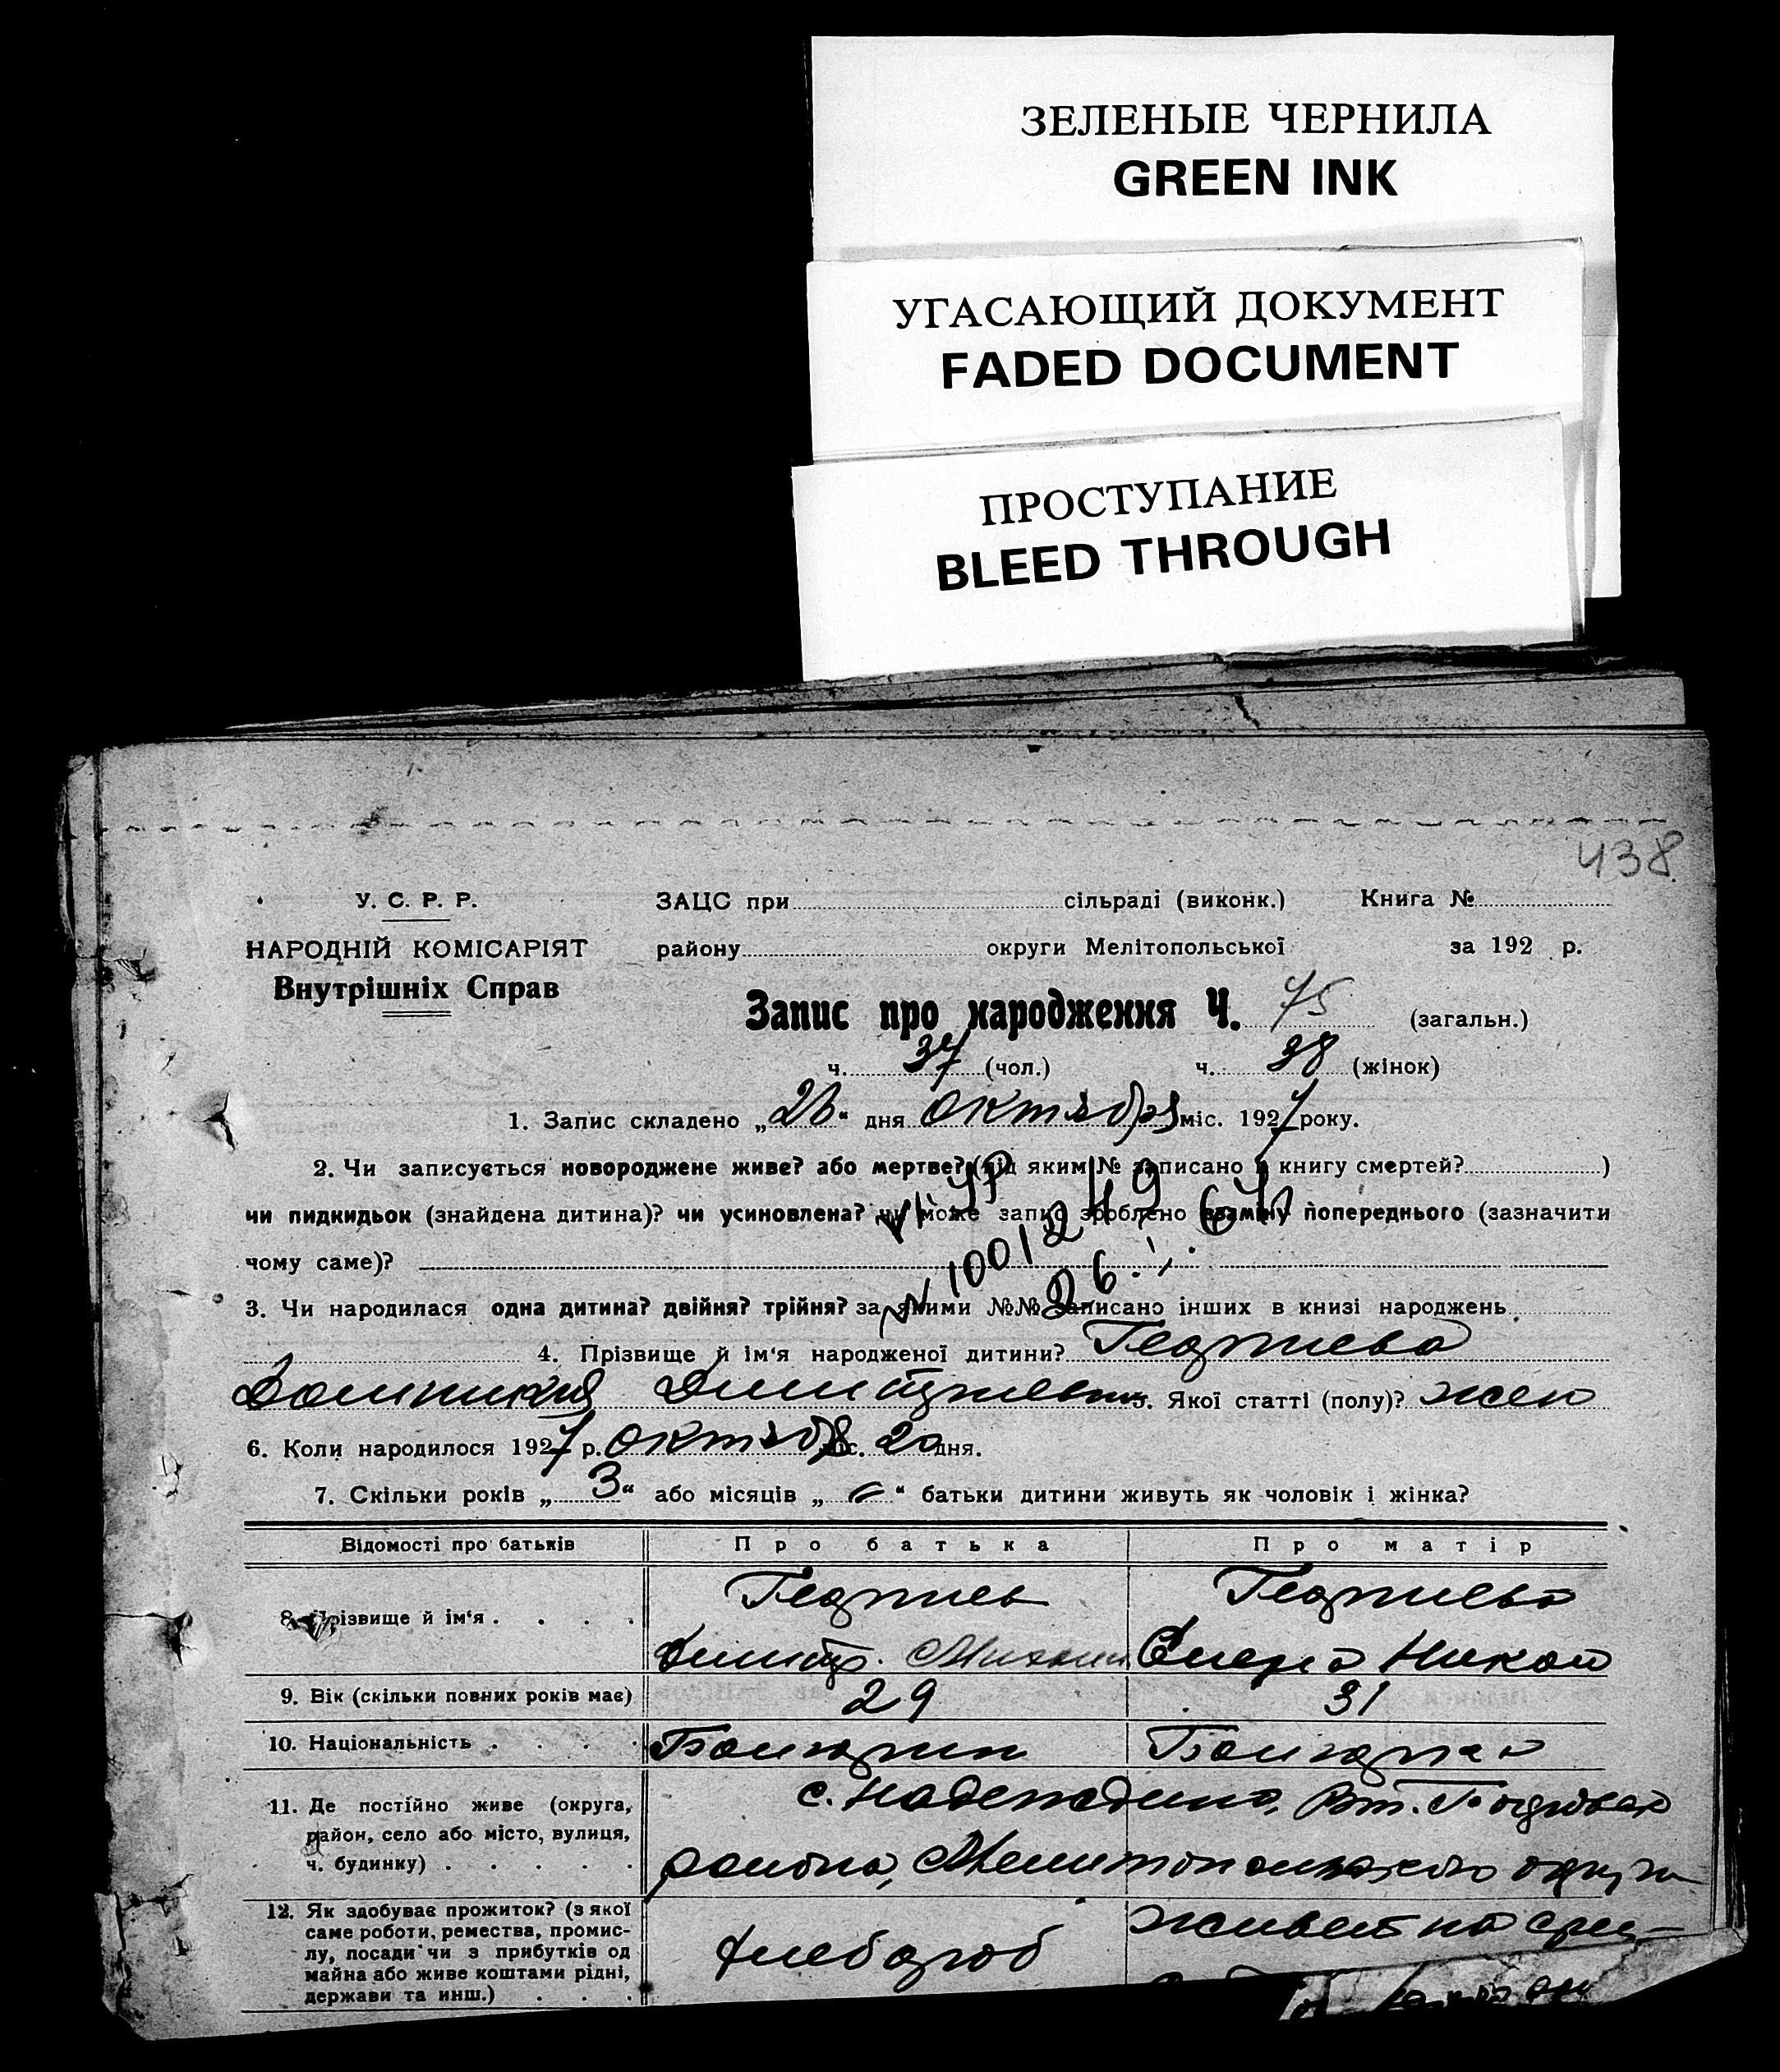 ЗЕЛЕНЫЕ ЧЕРНИЛА
GREEN INK
УГАСАЮЩИЙ ДОКУМЕНТ
FADED DOCUMENT
ПРОСТУПАНИЕ
BLEED THROUGH
438
У. С. Р. Р.
НАРОДНІЙ КОМІСАРІЯТ
Внутрішніх Справ
ЗАЦС при сільраді (виконк.) Книга №
району округи Мелітопольської за 192 р.
Запис про народження Ч. 75 (загальн.)
ч. 37 (чол.) ч. 38 (жінок)
1. Запис складено „ “ дня октября міс. 1927 року.
2. Чи записується новороджене живе? або мертве? (під яким № записано в книгу смертей? )
чи пидкидьок (знайдена дитина)? чи усиновлена? чи може запис зроблено взамін попереднього (зазначити
чому саме)?
3. Чи народилася одна дитина? двійня? трійня? за якими №№ записано інших в книзі народжень
4. Прізвище й ім‘я народженої дитини? Георгиева
5. Якої статті (полу)? жен
6. Коли народилося 1927 р. октября міс. 20 дня.
7. Скільки років „ 3 “ або місяців „ “ батьки дитини живуть як чоловік і жінка?
Відомості про батьків Про батька Про матір
8. Прізвище й ім‘я . . . . Георгиев Георгиева
Димитр. Михаил Никол
9. Вік (скільки повних років має) 29 31
10. Національність . . . . Болгарин Болгарка
11. Де постійно живе (округа,
район, село або місто, вулиця,
ч. будинку) . . . . .
с. Надеждино,
района, Мелитопольского
12. Як здобуває прожиток? (з якої
саме роботи, ремества, промис-
лу, посади чи з прибутків од
майна або живе коштами рідні,
держави та инш.) . . .
Хлебороб живет на сред-